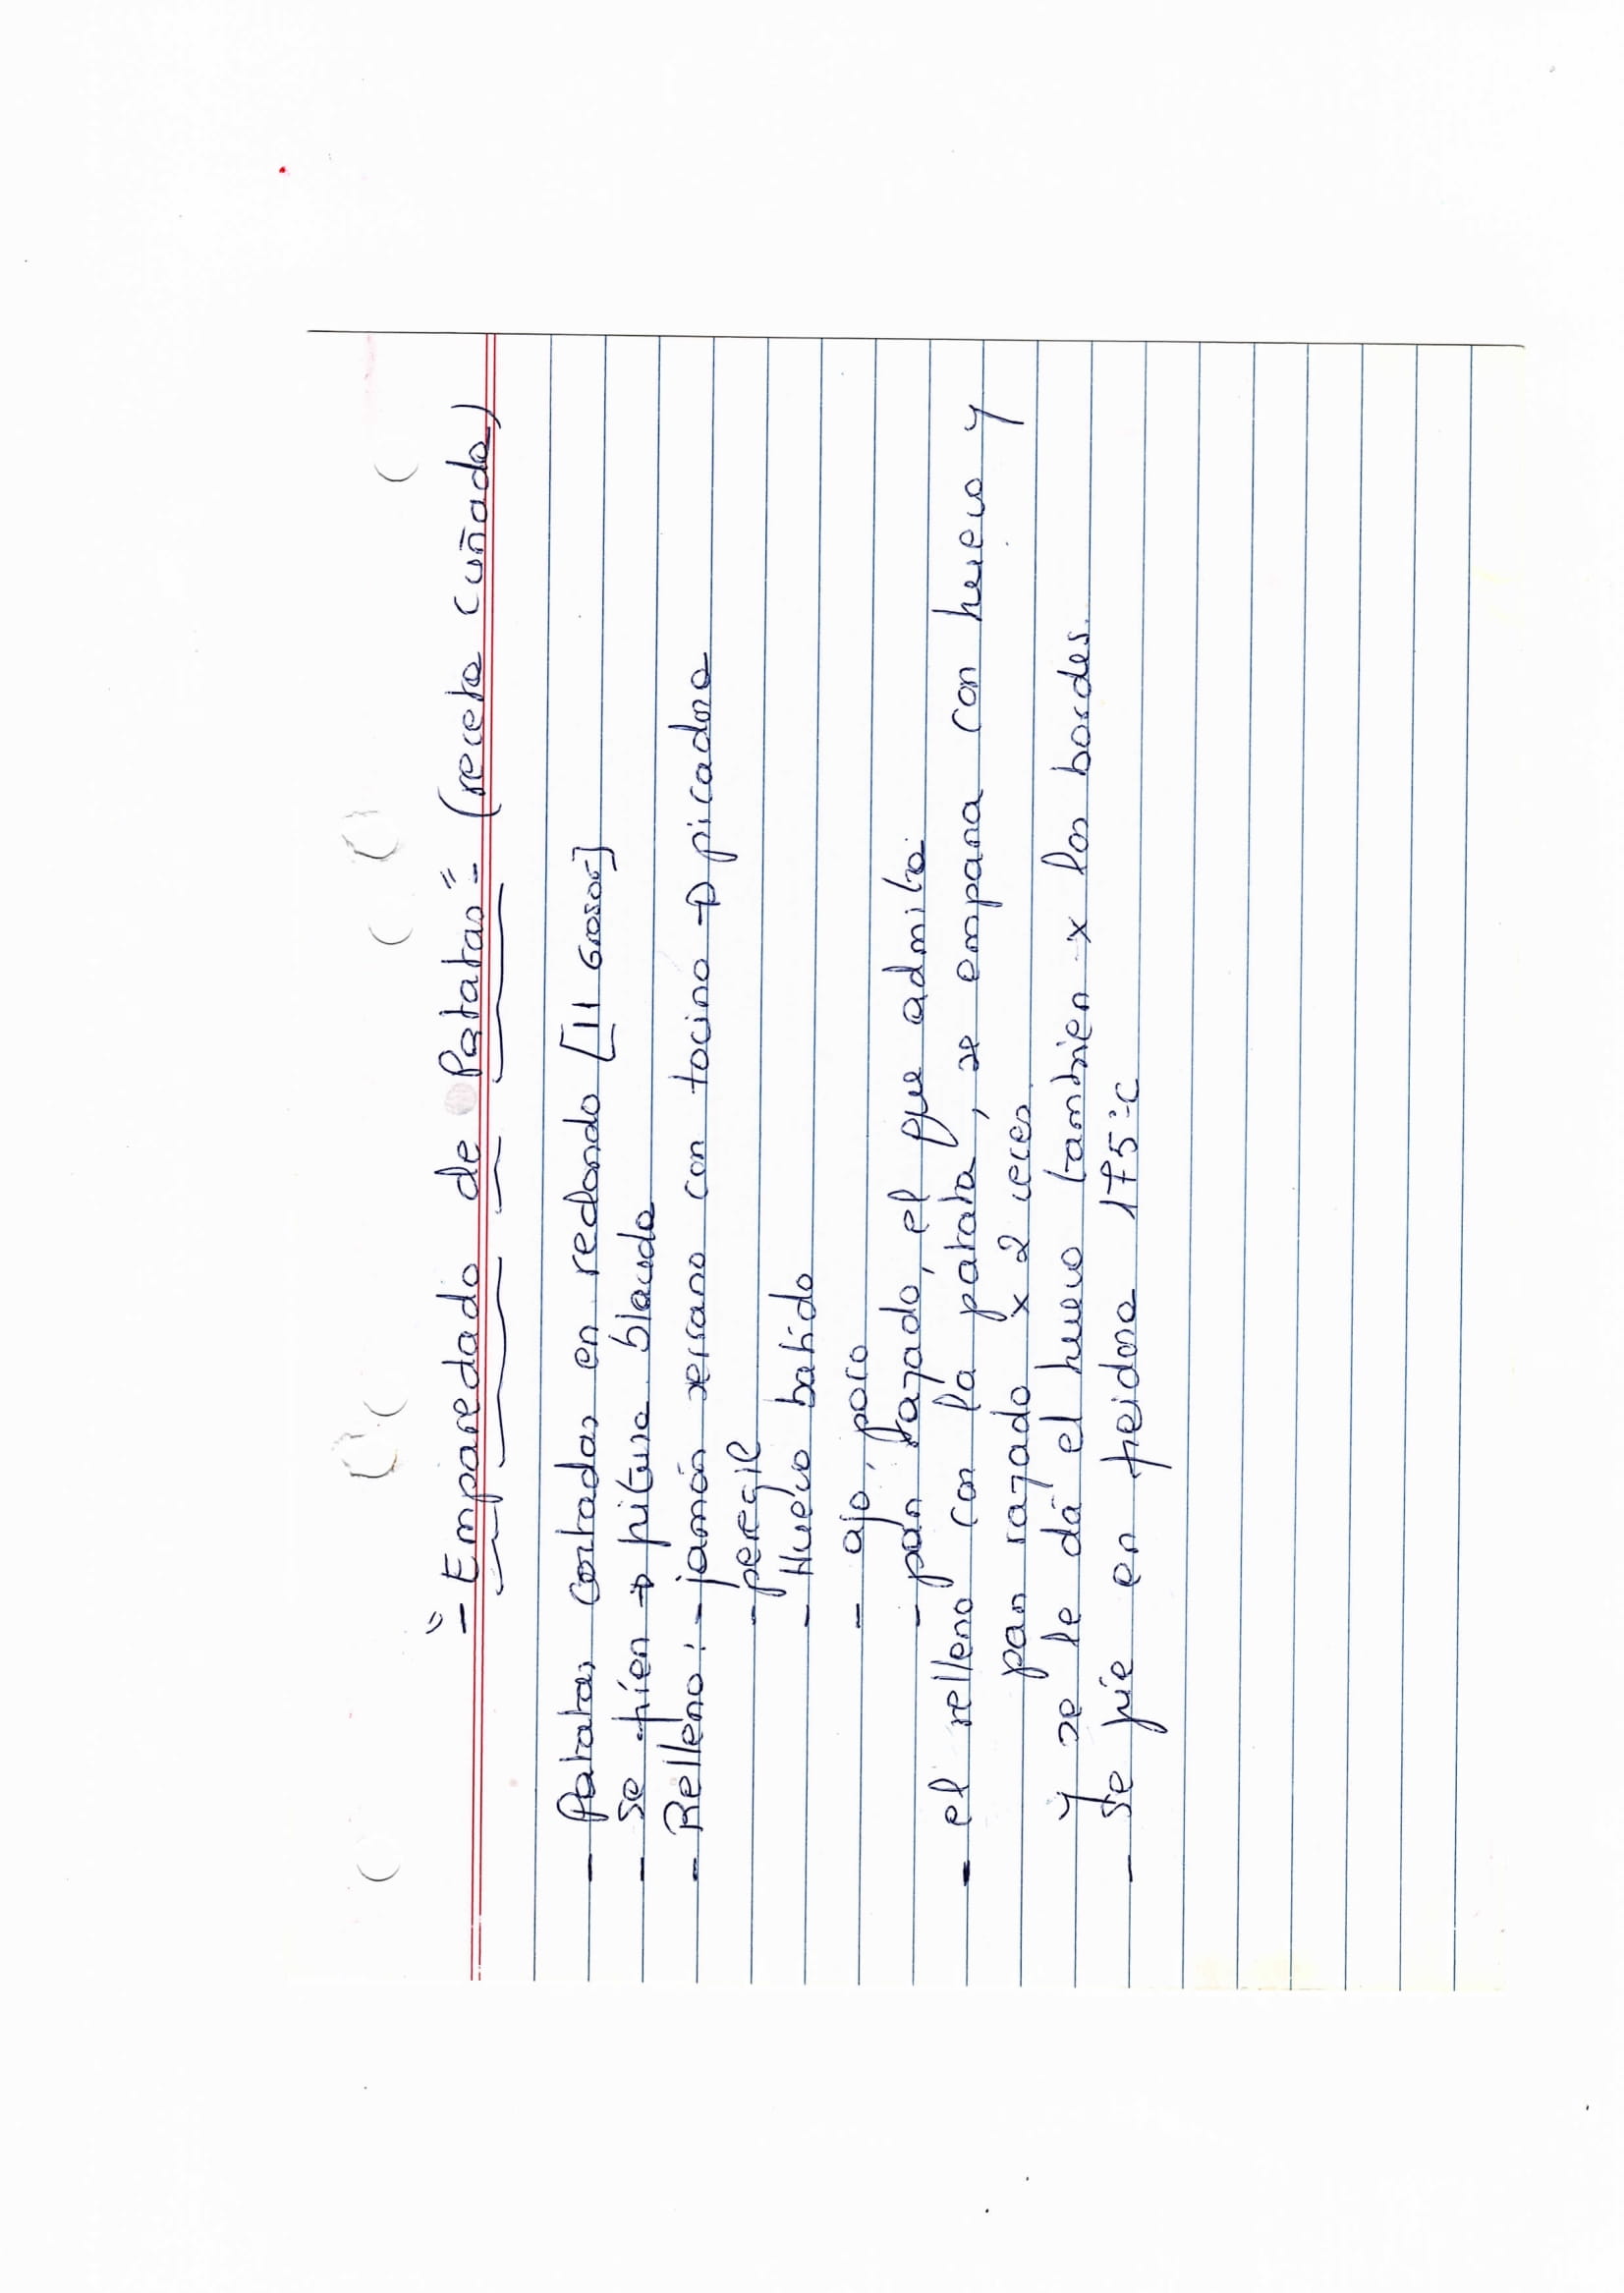 "- Emparedado de Patatas"- (receta cuñada)
- Patatas cortadas en redondo [11 Grosor]
- Se fríen → fritura blanda
- Relleno: - jamón serrano con tocino → picadora
- peregil
- Huevo batido
- ajo, poco
- pan razado, el que admita.
- el relleno con la patata, se empana con huevo y
pan razado x 2 veces.
y se le dá el huevo tambien x los bordes.
- Se fríe en freidora 175ºC